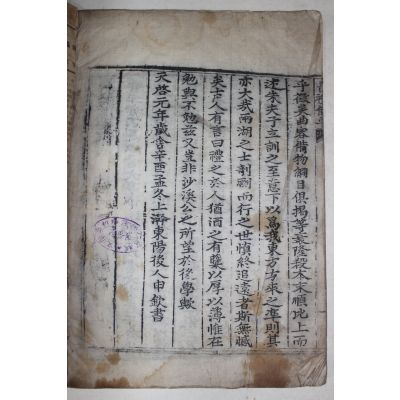 乎微文曲容備物綱目俱揭等衰隆殺本末順比上而
述朱夫子立訓之至意下以爲我東方方來之準則其
亦大哉兩湖之士剞劂而行之世愼終追遠者斯無憾
矣古人有言曰禮之於人猶酒之有糵以厚以薄惟在
勉與不勉玆又豈非沙溪公之所望於後學歟
天啓元年歲舍辛酉孟冬上澣東陽後人申欽書